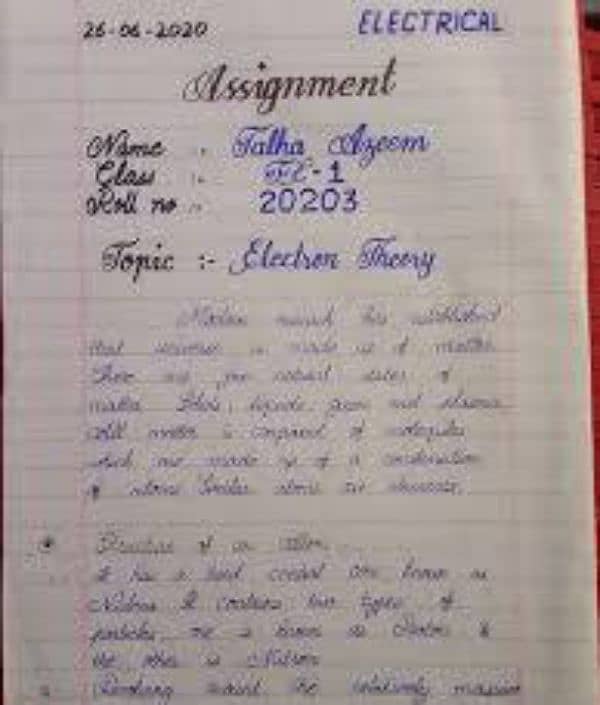 26-06-2020 ELECTRICAL
Assignment
Name : Talha Azeem
Class :- -1
Roll no :- 20203
Topic :- Electron Theory
Modern has established
that universe is made up of matter.
There are natural states of
matter liquids, gases and plasma
All matter is composed of molecules
which are made up of a combination
of atoms Similar atoms are
Structure of an Atom
It has a hard central core known as
Nucleus It contains two types of
particles, one is known as Proton &
the other is Neutron
Revolving around the relatively massive